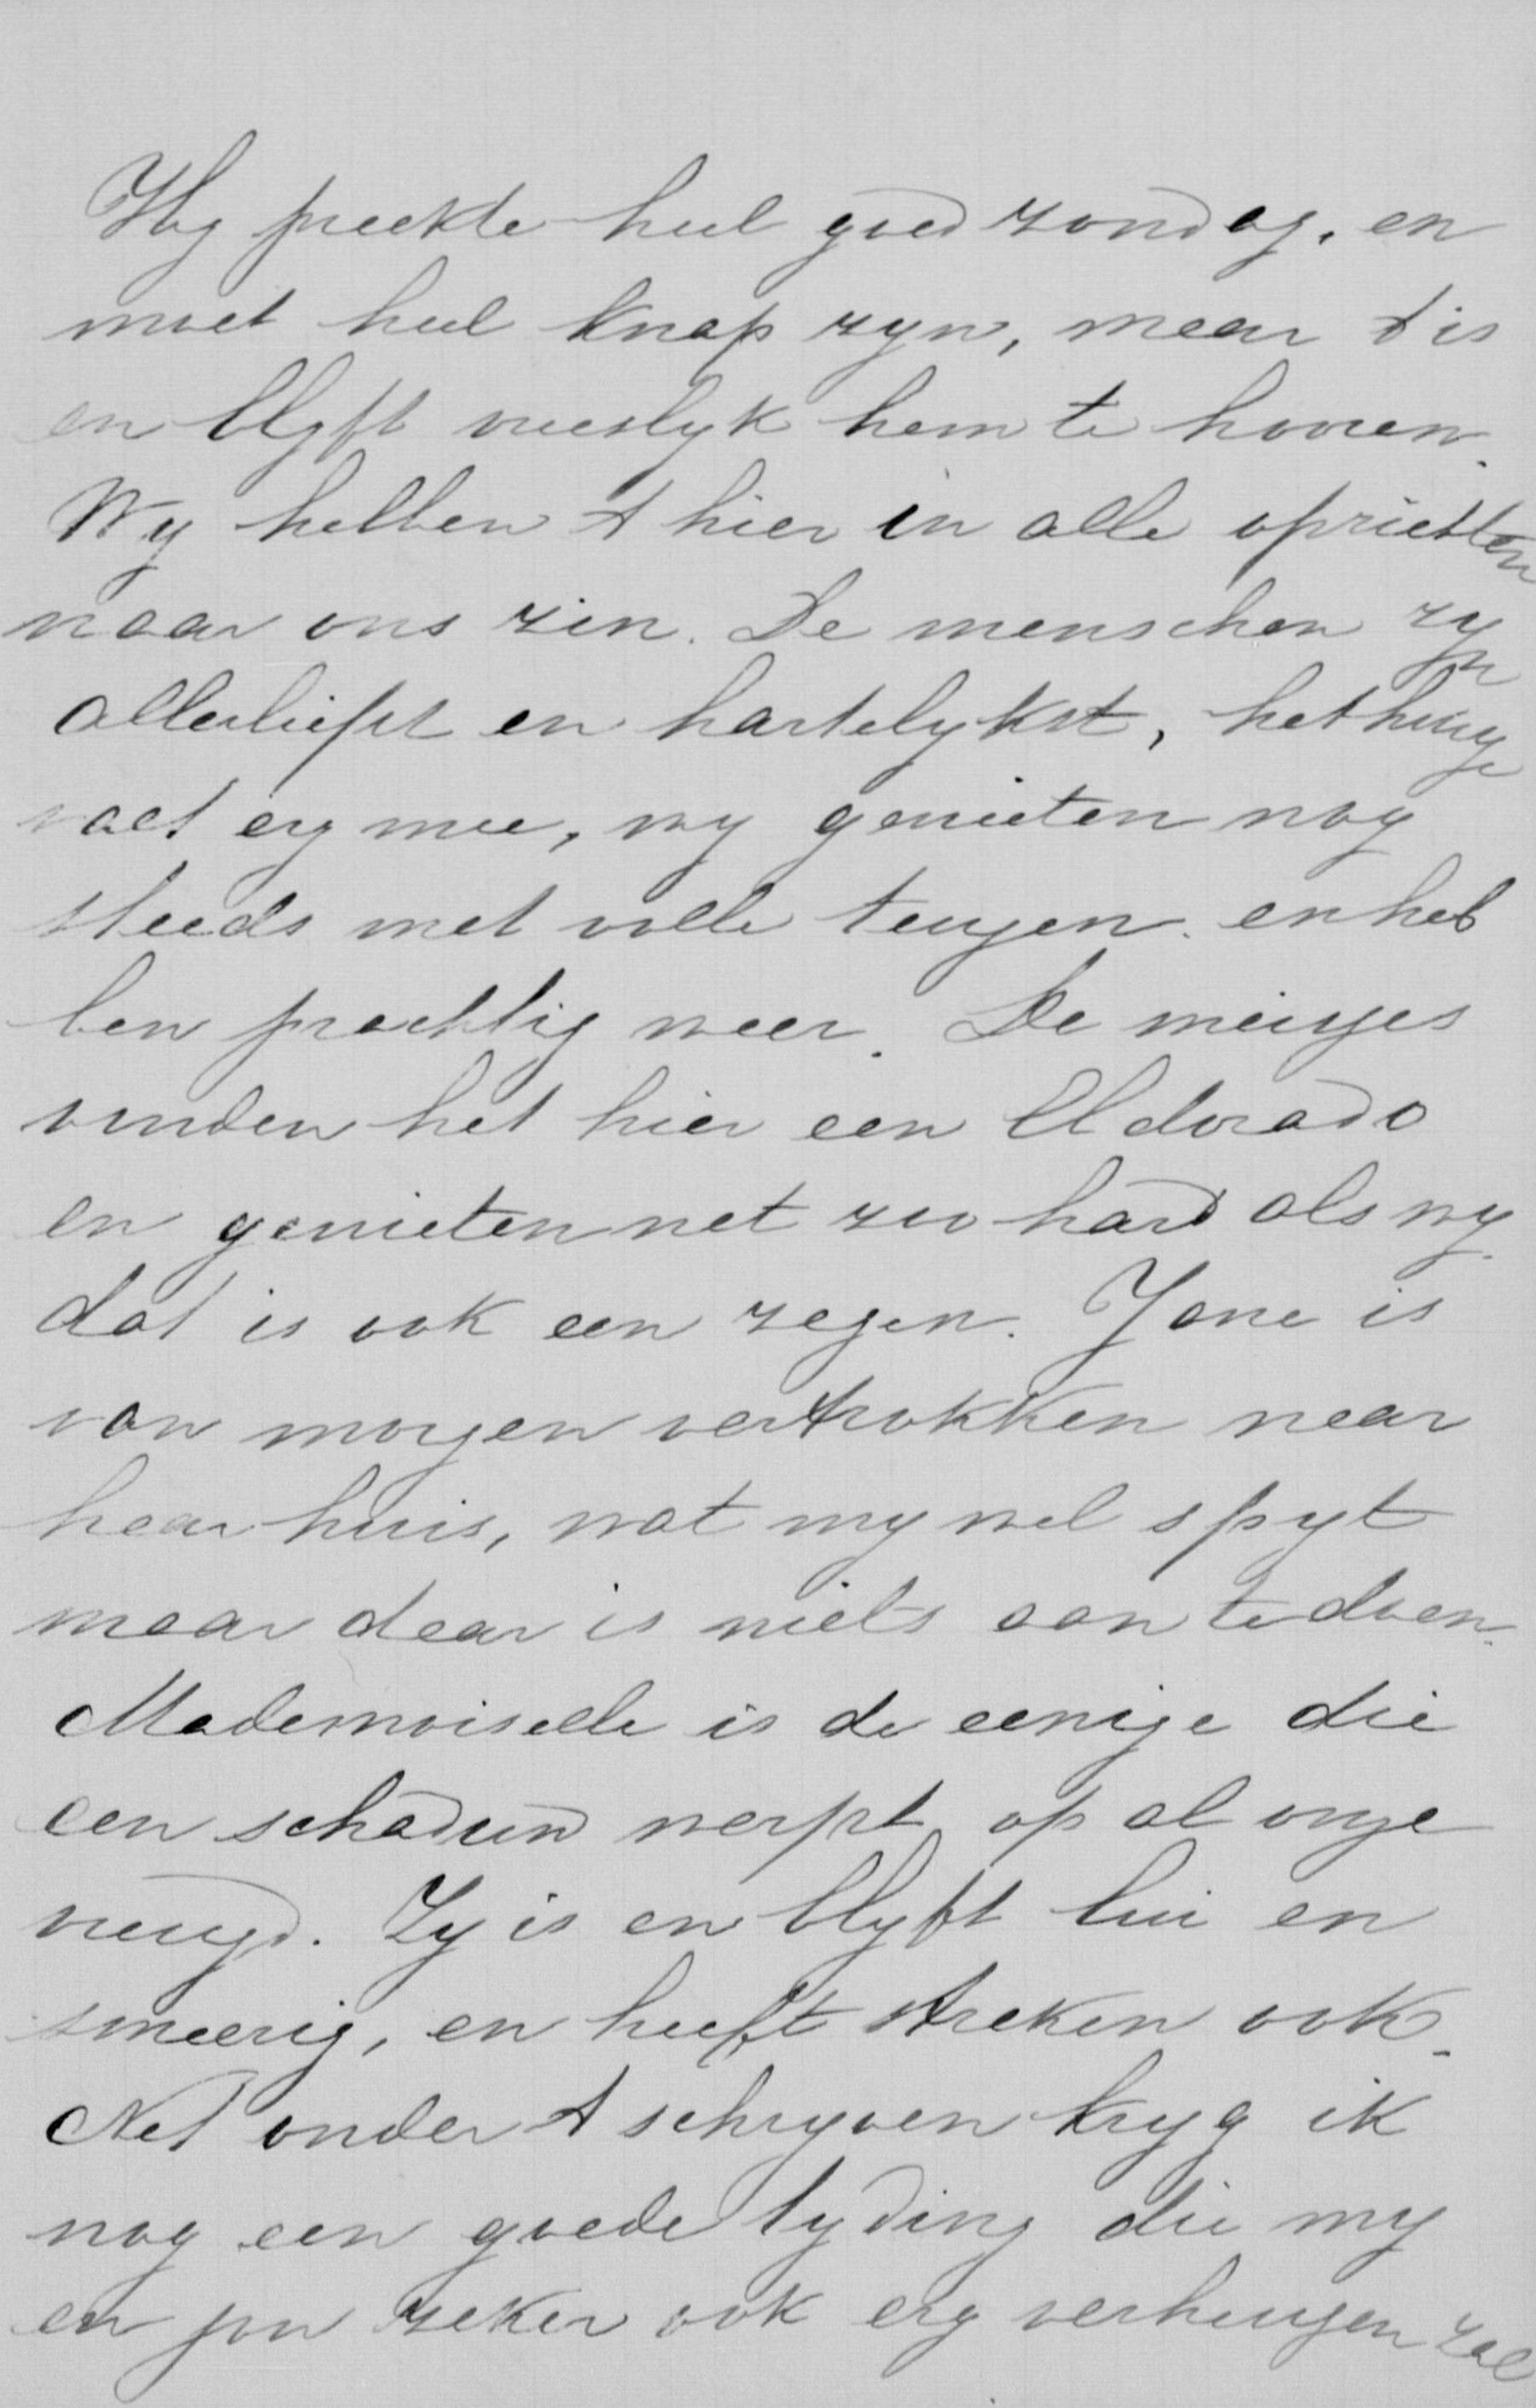 Hy preekte heel goed zondag, en
moet heel knap zyn, maar t is
en blyft vreeslyk hem te hooren.
Wy hebben t hier in alle opzichten
naar ons zin. De menschen zyn
allerliefst en hartelykst, het huisje
valt erg mee, wy genieten nog
steeds met volle teugen. en heb
ben prachtig weer. De meisjes
vinden het hier een Eldorado
en genieten net zoo hard als wy.
dat is ook een zegen. Jane is
van morgen vertrokken naar
haar huis, wat my wel spyt
maar daar is niets aan te doen.
Mademoiselle is de eenige die
een schaduw werpt op al onze
vreugd. Zy is en blyft lui en
smeerig, en heeft streken ook.
Net onder t schryven kryg ik
nog een goede tyding die my
en jou zeker ook erg verheugen zal